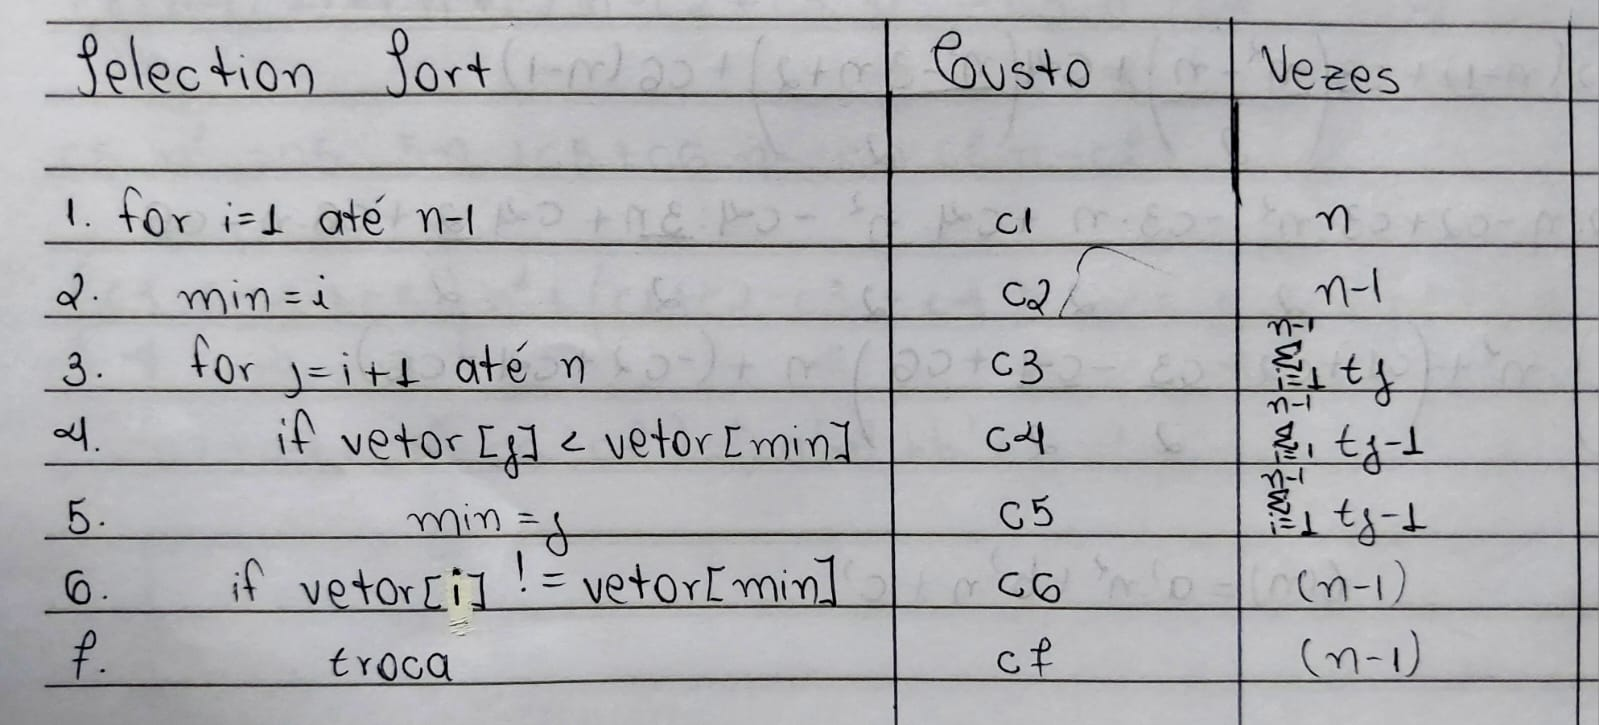 Selection Sort Custo Vezes
1. for i=1 até n-1 c1 n
2. min = i c2 n-1
3. for j=i+1 até n c3 n-1 Σ i=1 tj
4. if vetor[j] < vetor[min] c4 n-1 Σ i=1 tj-1
5. min = j c5 n-1 Σ i=1 tj-1
6. if vetor[i] != vetor[min] c6 (n-1)
7. troca c7 (n-1)